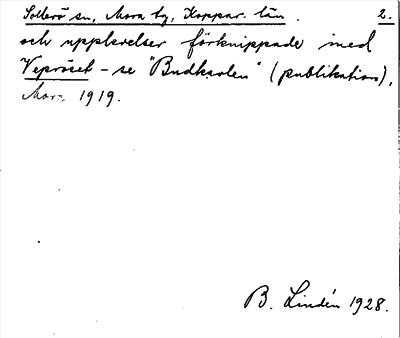 Sollerö sn, Mora tg, Koppar. län. 2.
och upplevelser förknippade med
Vepröset - se "Budkavlen" (publikation),
Mora 1919.
B. Lindén 1928.